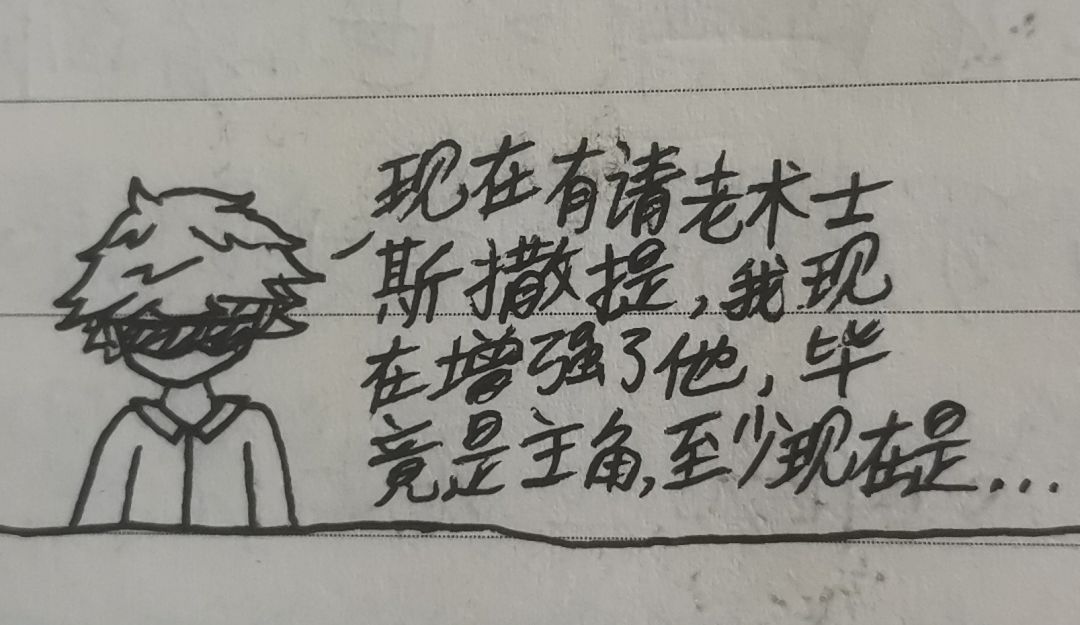 现在有请老术士
斯撒提,我现
在增强了他,毕
竟是主角,至少现在是...